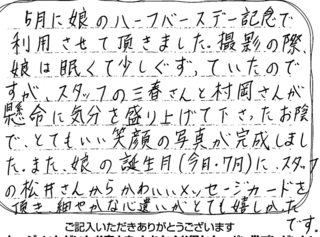 5月に娘のハーフバースデー記念で
利用させて頂きました。撮影の際、
娘は眠くて少しぐずっていたので
すが、スタッフの三春さんと村岡さんが
懸命に気分を盛り上げて下さったお陰
で、とてもいい笑顔の写真が完成しまし
た。また、娘の誕生月(今月・7月)に、スタッフ
の松井さんからかわいいメッセージカードを
頂き、細やかな心遣いがとても嬉しかった
です。
ご記入いただきありがとうございます